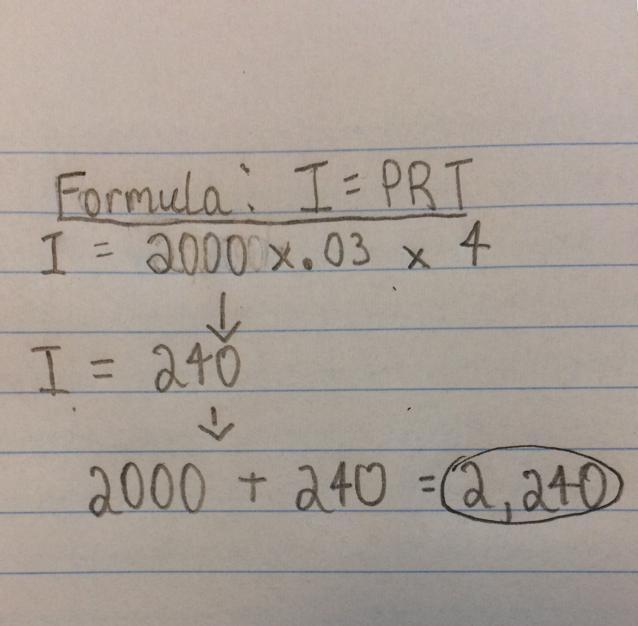 Formula: I = PRT
I = 2000 x .03 x 4
↓
I = 240
↓
2000 + 240 = 2,240